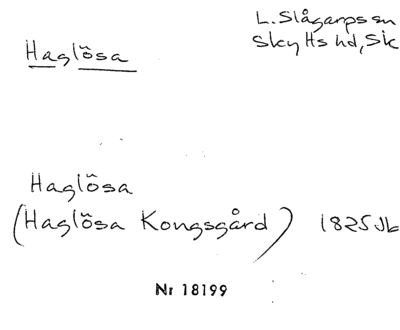 Haglösa
L. Slågarps sn
Skytts hd, Sk
Haglösa
(Haglösa Kongsgård) 1825 Jb
Nr 18199